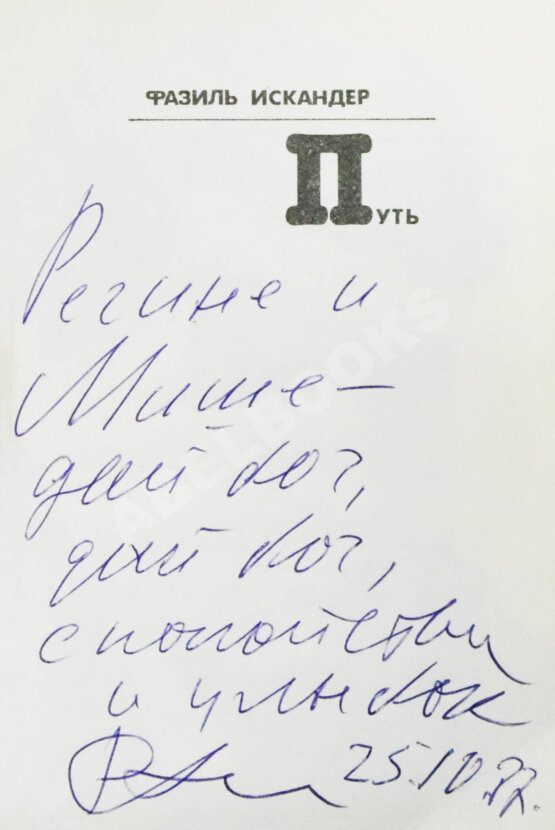 ФАЗИЛЬ ИСКАНДЕР
ПУТЬ
Регине и
Мише –
дай бог,
дай бог,
спокойствия
и улыбок
25.10.
ABELBOOKS